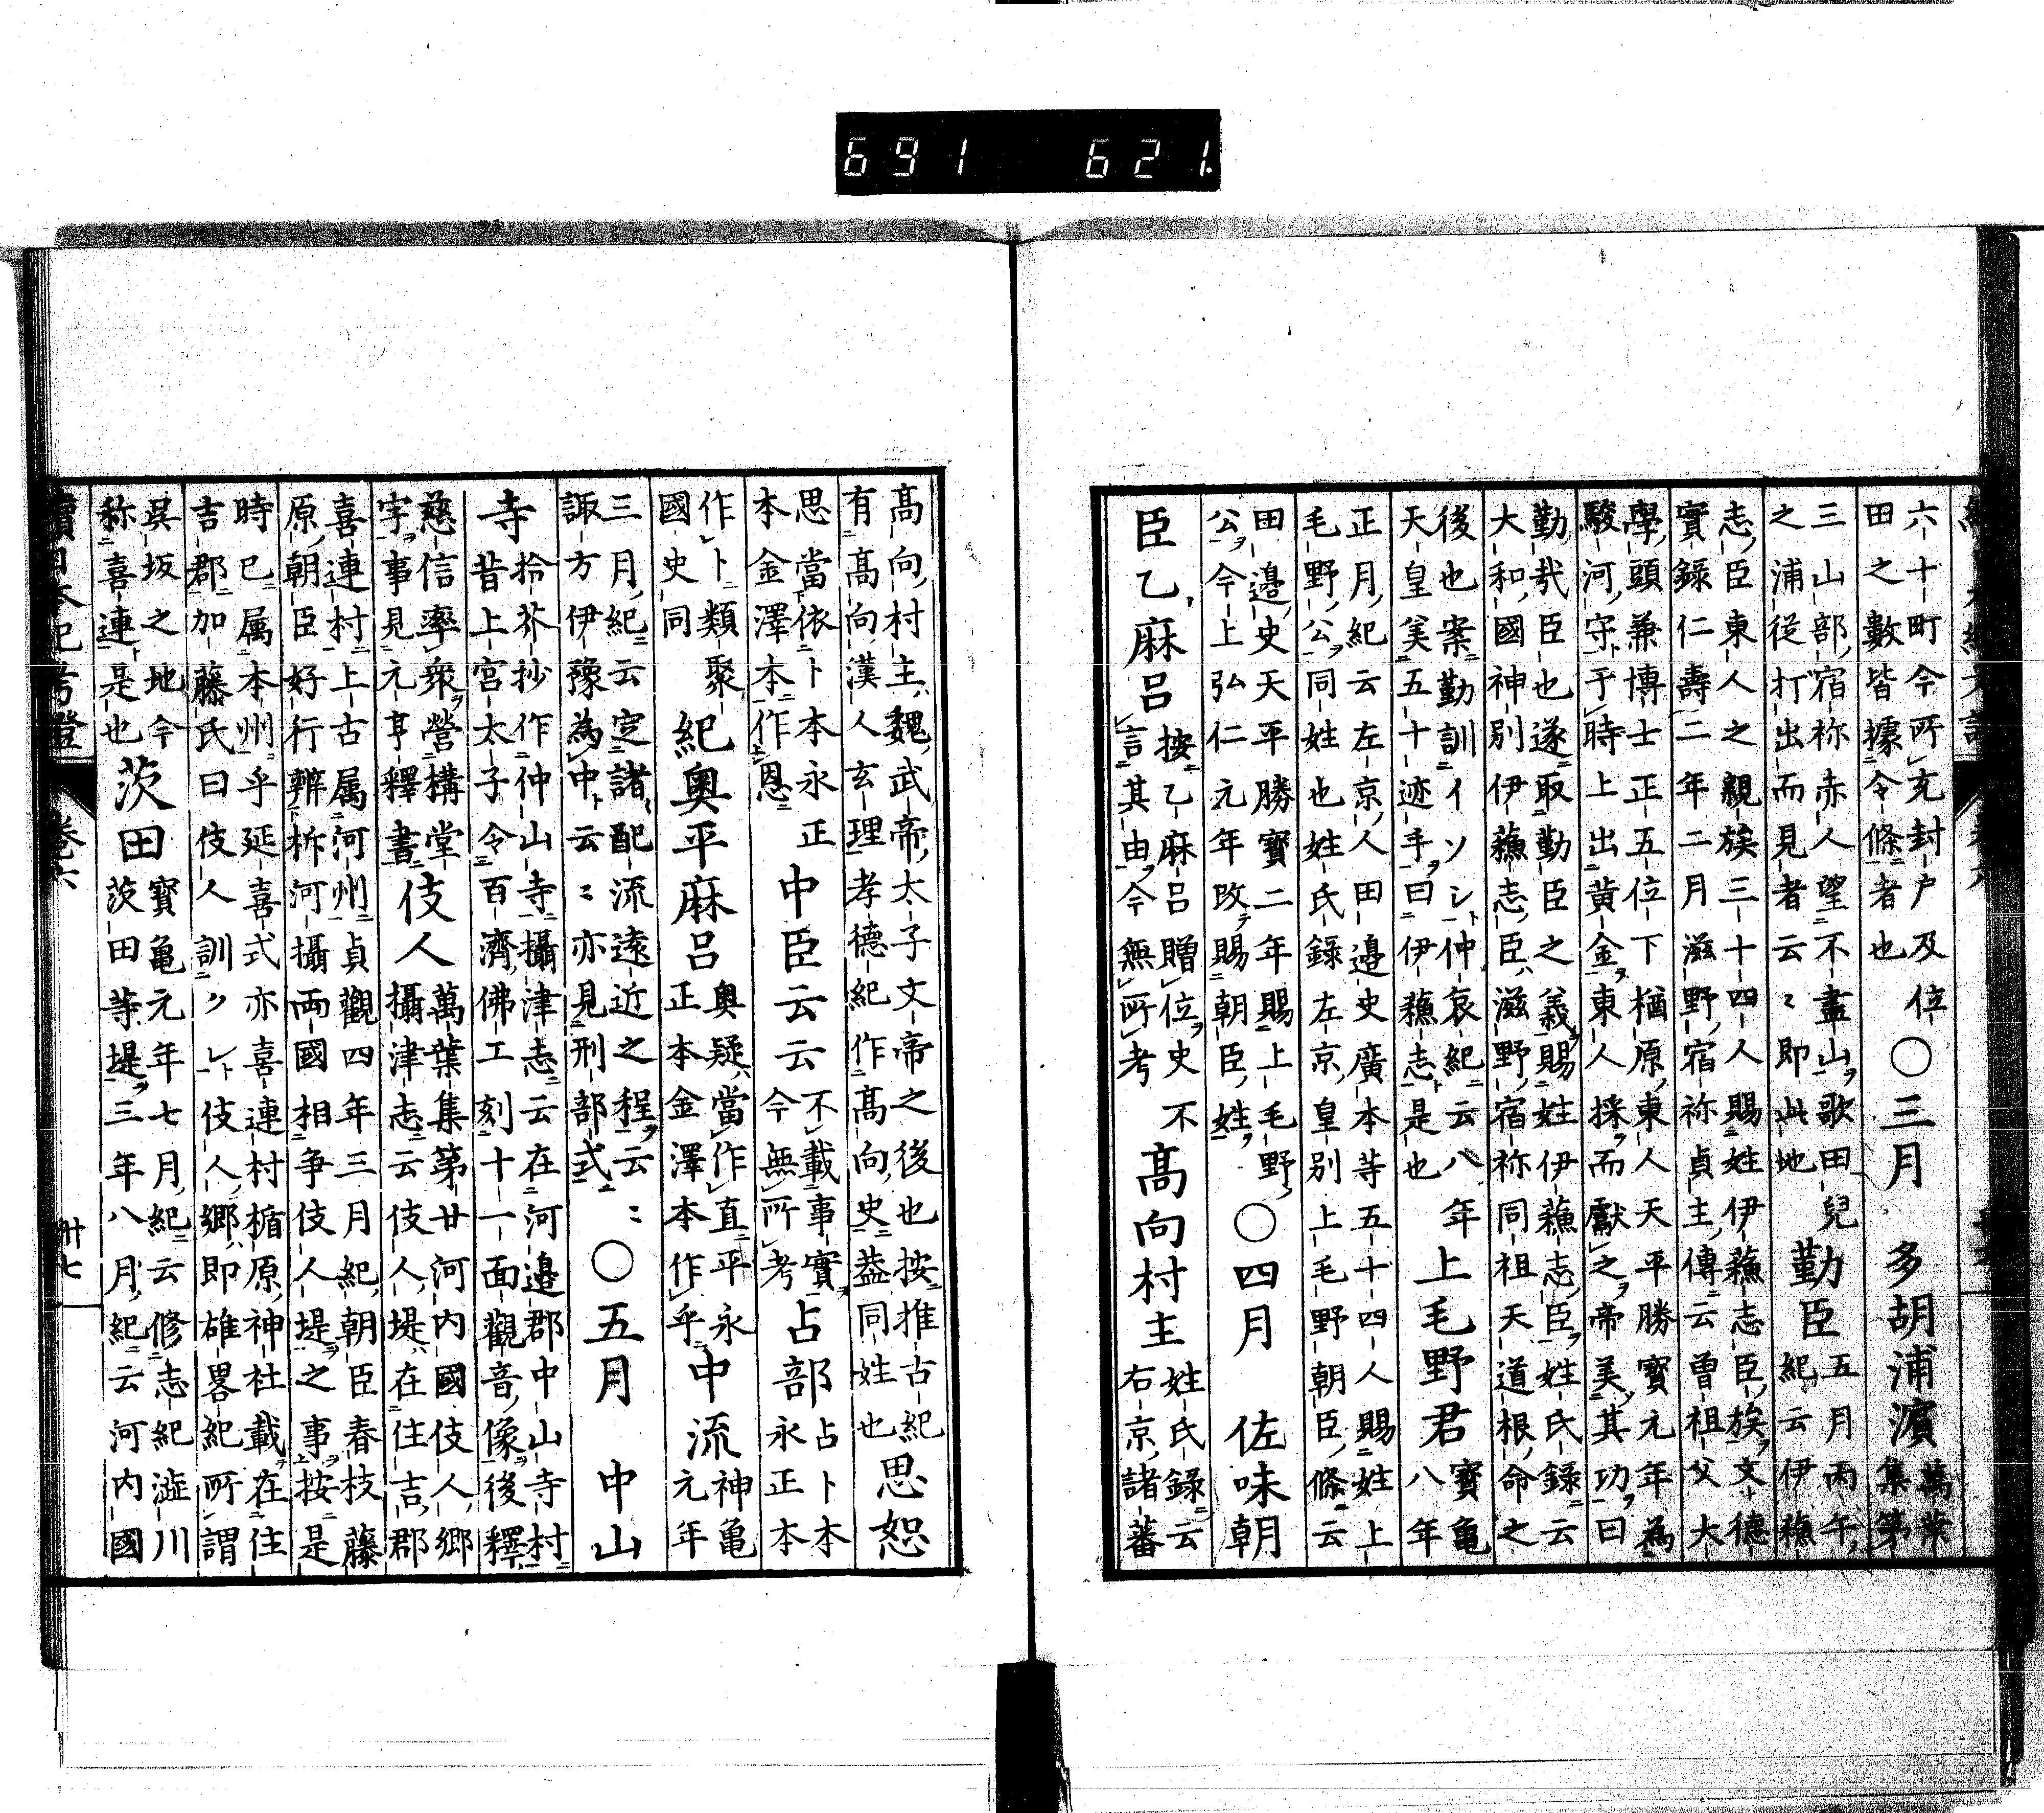 六十町今所充封戸及位
田之數皆據令條者也
○三月　多胡浦濱
萬葉
集第
三山部宿祢赤人望不盡山歌田兒
之浦從打出而見者云〻即此地
勤臣
五月丙午
紀云伊蘓
志臣東人之親族三十四人賜姓伊蘓志臣族文德
實錄仁壽二年二月滋野宿祢貞主傳云曽祖父大
學頭兼博士正五位下楢原東人天平勝寶元年為
駿河守于時上出黄金東人採而獻之帝美其功曰
勤哉臣也遂取勤臣之義賜姓伊蘓志臣姓氏錄云
大和國神別伊蘓志臣滋野宿祢同祖天道根命之
後也案勤訓イソシ仲哀紀云八年
天皇美五十迹手曰伊蘓志是也
上毛野君
寶亀
八年
正月紀云左京人田邉史廣本等五十四人賜姓上
毛野公同姓也姓氏錄左京皇別上毛野朝臣條云
田邉史天平勝寶二年賜上毛野
公今上弘仁元年改賜朝臣姓
○四月　佐味朝
臣乙麻呂
按乙麻呂贈位史不
言其由今無所考
髙向村主
姓氏錄云
右京諸蕃
髙向村主魏武帝太子文帝之後也按推古紀
有髙向漢人玄理孝德紀作髙向史蓋同姓也
思恕
思當依卜本永正
本金澤本作恩
中臣云云
不載事實
今無所考
占部
占卜本
永正本
作卜類聚
國史同
紀奥平麻呂
奥疑當作直平永
正本金澤本作乎
中流
神亀
元年
三月紀云定諸配流遠近之程云〻
諏方伊豫為中云〻亦見刑部式
○五月　中山
寺
拾芥抄作仲山寺攝津志云在河邉郡中山寺村
昔上宮太子令百濟佛工刻十一面觀音像後釋
慈信率衆營構堂
字事見元亨釋書
伎人
萬葉集第廿河内國伎人郷
攝津志云伎人堤在住吉郡
喜連村上古属河州貞觀四年三月紀朝臣春枝藤
原朝臣好行辨柝河攝両國相争伎人堤之事按是
時已属本州乎延喜式亦喜連村楯原神社載在住
吉郡加藤氏曰伎人訓クレ伎人郷即雄畧紀所謂
呉坂之地今
称喜連是也
茨田
寶亀元年七月紀云修志紀澁川
茨田等堤三年八月紀云河内國
續日本紀考證　卷六　卅七